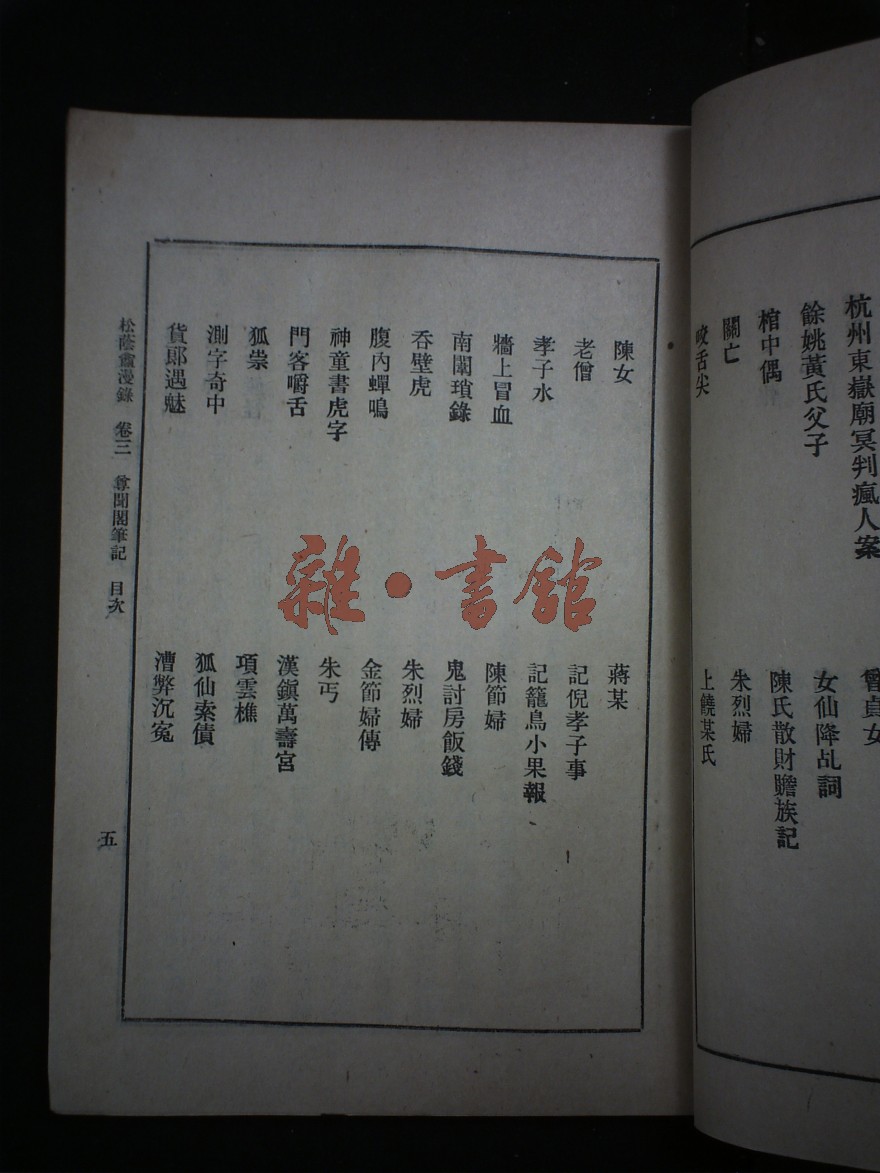 杭州東嶽廟冥判瘋人案
餘姚黃氏父子
女仙降乩詞
棺中偶
陳氏散財贍族記
關亡
朱烈婦
咬舌尖
上饒某氏
陳女
蔣某
老僧
記倪孝子事
孝子水
記籠鳥小果報
牆上冒血
陳節婦
南闈瑣錄
鬼討房飯錢
吞壁虎
朱烈婦
腹內蟬鳴
金節婦傳
神童書虎字
朱丐
門客嚼舌
漢鎭萬壽宮
狐祟
項雲樵
測字奇中
狐仙索債
貨郎遇魅
漕弊沉寃
松蔭盦漫錄 卷三 尊聞閣筆記 目次
五
雜·書館